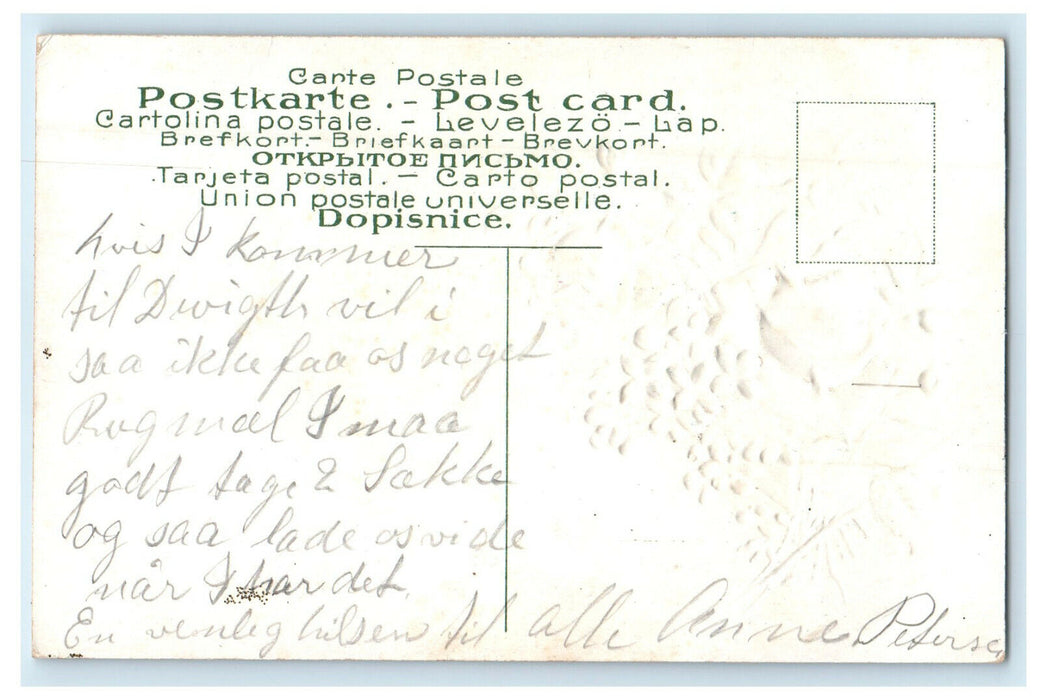 Carte Postale
Postkarte. - Post card.
Cartolina postale. - Levelezö - Lap.
Brefkort. - Briefkaart - Brevkort.
ОТКРЫТОЕ ПИСЬМО.
Tarjeta postal. - Carto postal.
Union postale universelle.
Dopisnice.
hvis I kommer
til Dwigth vil i
saa ikke faa os noget
Rugmæl I maa
godt tage 2 Sække
og saa lade os vide
når I har det
En venlig hilsen til alle Anne Peterse